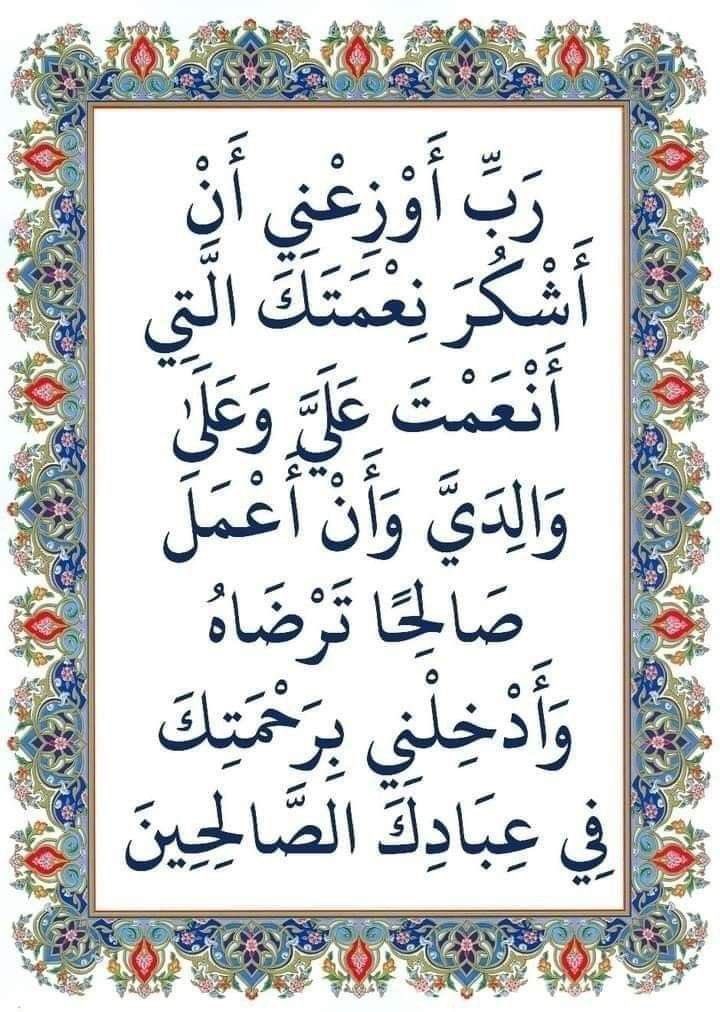 رَبِّ أَوْزِعْنِي أَنْ
أَشْكُرَ نِعْمَتَكَ الَّتِي
أَنْعَمْتَ عَلَيَّ وَعَلَىٰ
وَالِدَيَّ وَأَنْ أَعْمَلَ
صَالِحًا تَرْضَاهُ
وَأَدْخِلْنِي بِرَحْمَتِكَ
فِي عِبَادِكَ الصَّالِحِينَ